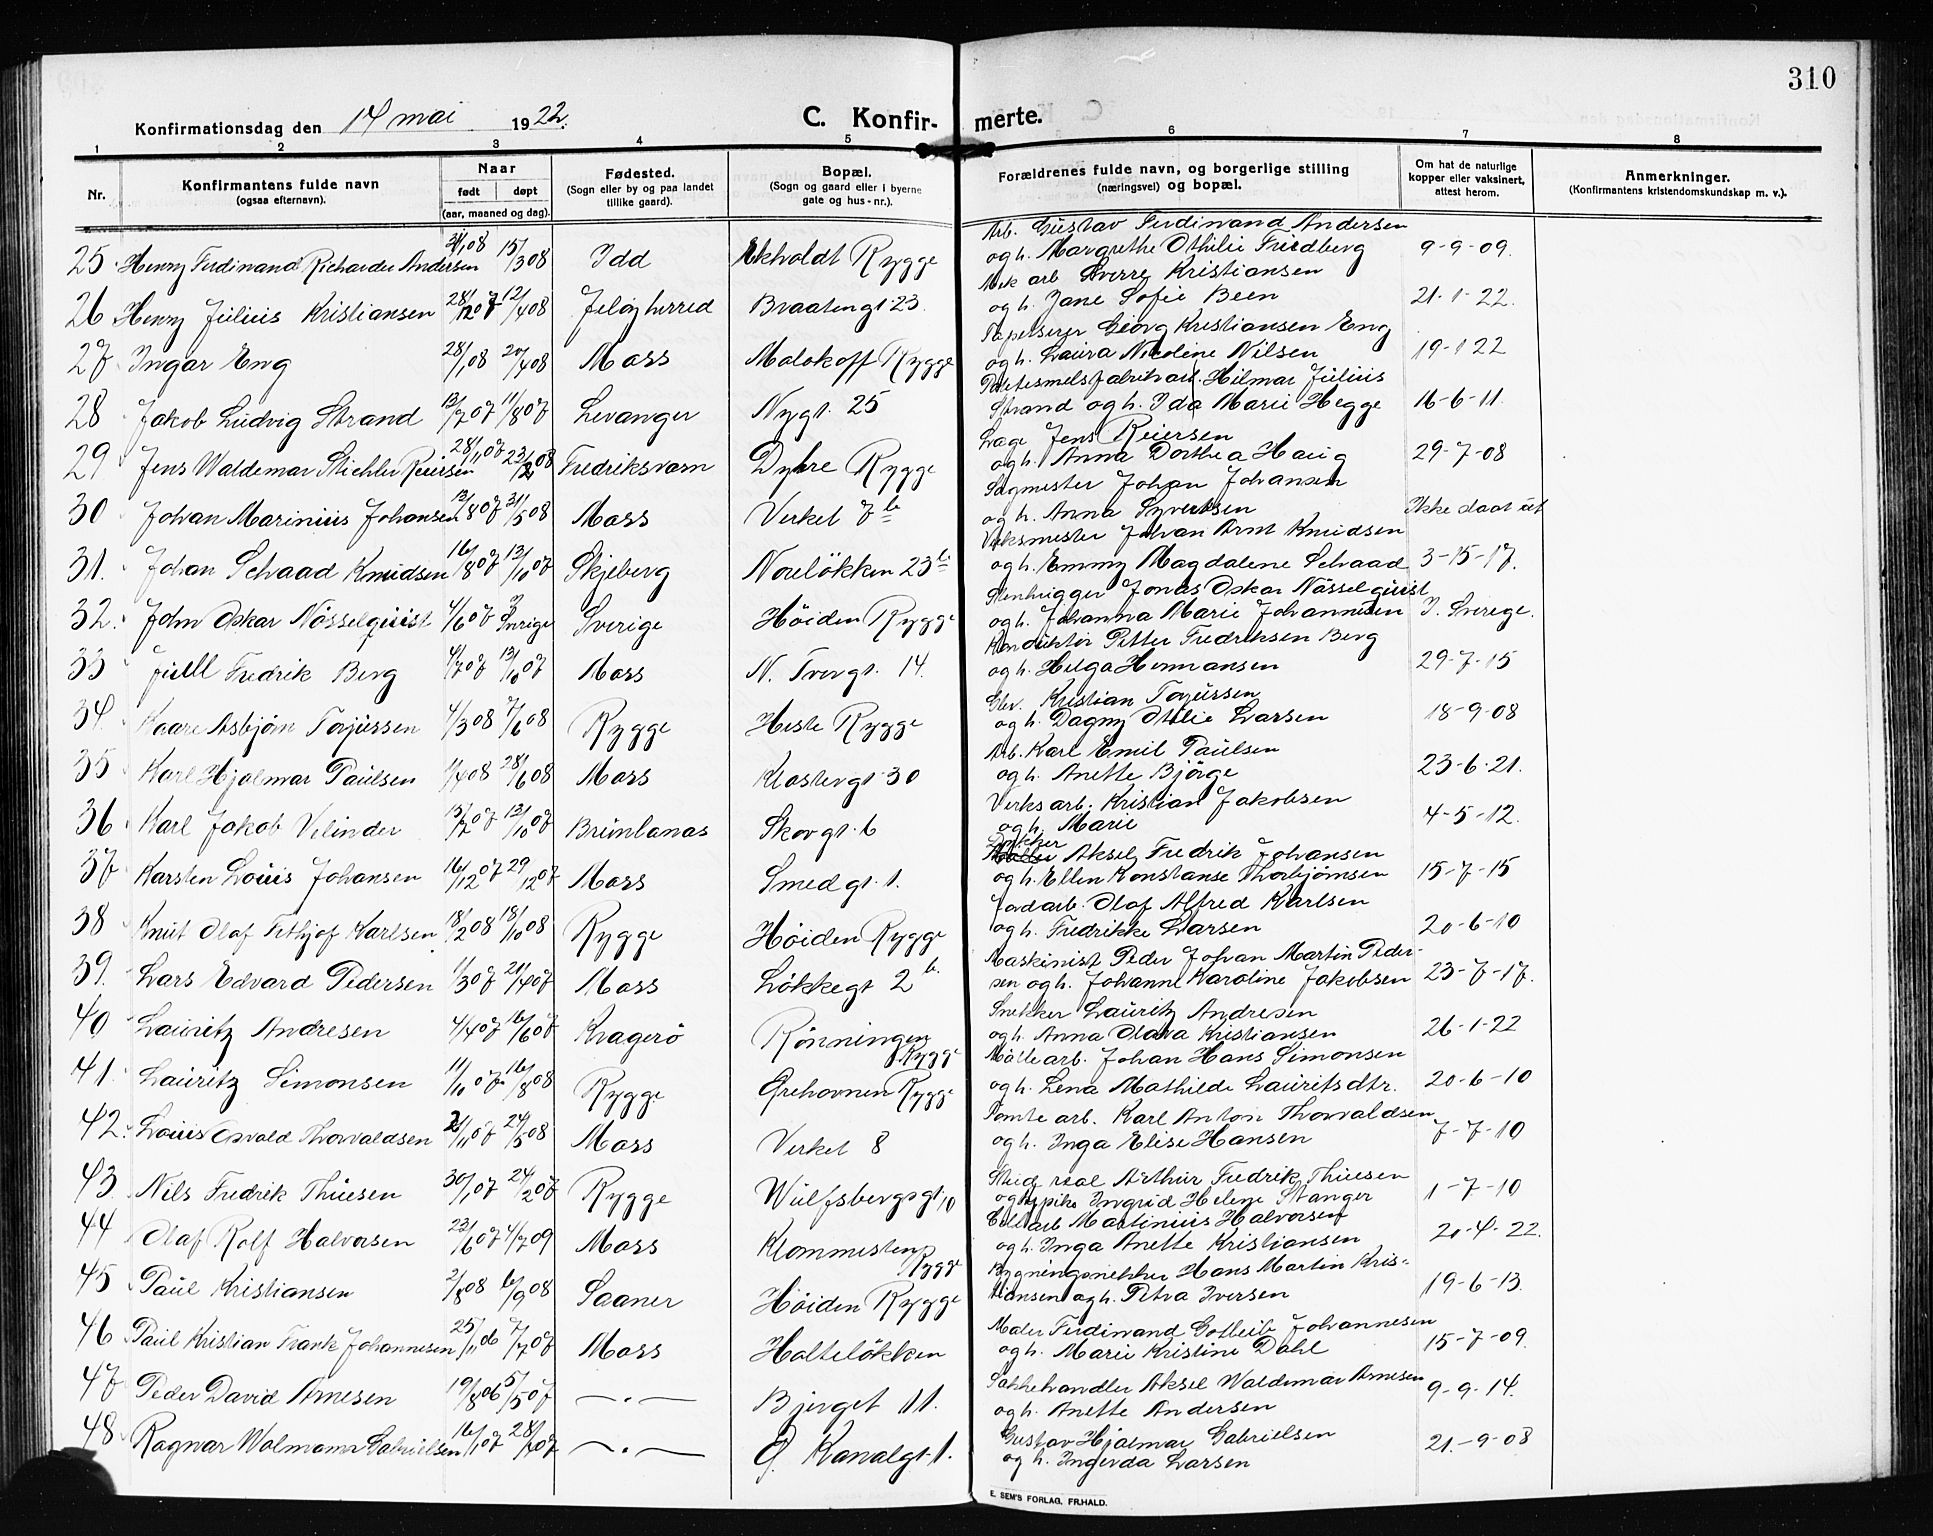 310
Konfirmationsdag den 14 mai 1922. C. Konfir- merte.
1 2 3 4 5 6 7 8
Nr.
Konfirmantens fulde navn
(ogsaa efternavn).
Naar
født døpt
(aar, maaned og dag).
Fødested.
(Sogn eller by og paa landet
tillike gaard).
Bopæl.
(Sogn og gaard eller i byerne
gate og hus-nr.).
Forældrenes fulde navn, og borgerlige stilling
(næringsvei) og bopæl.
Om hat de naturlige
kopper eller vaksinert,
attest herom.
Anmerkninger.
(Konfirmantens kristendomskundskap m. v.).
25 Henry Ferdinand Richarder Andersen 15/3 08 Idd Ekholdt Rygge Arb. Gustav Ferdinand Andersen
og h. Margrethe Othilie Friedberg 9-9-09.
26 Henry Julius Kristiansen 28/12 07 12/4 08 Jeløy herred Braatengt. 23. Mek arb Sverre Kristiansen
og h. Jane Sofie Been 21-1-22.
27 Ingar Eng 28/1 08 20/4 08 Moss Malakoff Rygge Tapetserer Georg Kristiansen Eng
og h. Laura Nicoline Nilsen 19-1 22
28 Jakob Ludvig Strand 13/7 07 11/8 07 Levanger Nygt. 25 Potetesmelsfabrikarb. Hilmar Julius
Strand og h. Ida Marie Hegge 16-6-11.
29 Jens Waldemar Stichler Reiersen 28/11 07 23/2 08 Fredriksværn Dybre Rygge Læge Jens Reiersen
og h. Anna Dorthea Haug 29-7-08
30 Johan Marinius Johansen 13/8 07 31/5 08 Moss Verket 7b Sagmester Johan Johansen
og h. Anna Syvertsen Ikke slaat ut
31. Johan Schaad Knudsen 16/8 07 13/10 07 Skjeberg Noreløkken 23b. Verksmester Johan Arnt Knudsen
og h. Emmy Magdalene Schaad 3-15-17.
32. John Oskar Nösselquist 4/6 07 ? Sverige Sverige Höiden Rygge Stenhugger Jonas Oskar Nösselquist
og h. Johanna Marie Johannesen I. Sverege.
33 Juell Fredrik Berg 4/7 07 13/10 07 Moss N. Tvergt. 14. Konduktör Petter Fredriksen Berg
og h. Helga Hermansen 29-7-15
34. Kaare Asbjørn Torjussen 4/3 08 7/6 08 Rygge Heste Rygge Kristian Torjussen
og h. Dagny Otilie Larsen 18-9-08
35 Karl Hjalmar Paulsen 1/4 08 28/6 08 Moss Klostergt. 30 Arb. Karl Emil Paulsen
og h. Anette Bjørge 23-6-21.
36 Karl Jakob Velinder 15/7 07 13/10 07 Brunlanæs Skovgt. 6 Verksarb. Kristian Jakobsen
og h. Marie 4-5-12.
37 Karsten Louis Johansen 16/12 07 29/12 07 Moss Smedgt. 1. Aksel Fredrik Johansen
og h. Ellen Konstanse Thorbjørnsen 15-7-15
38 Knut Olaf Fethjof Karlsen 18/2 08 18/10 08 Rygge Höiden Rygge Jordarb. Olaf Alfred Karlsen
og h. Fredrikke Larsen 20-6-10
39. Lars Edvard Pedersen 1/3 07 21/4 07 Moss Løkkegt 2b. Maskinist Peder Johan Martin Peder-
sen og h. Johanne Karoline Jakobsen 23-7-17.
40 Lauritz Andresen 4/4 07 16/6 07 Kragerö Rønningen
Rygge Snekker Lauritz Andresen
og h. Anna Olava Kristiansen 26-1-22
41. Lauritz Simonsen 11/11 07 16/8 08 Rygge Grehovnen Rygge Mølle arb. Johan Hans Simonsen
og h. Lena Mathilde Lauritsdtr. 20-6-10
42. Louis Osvald Thorvaldsen 24/5 08 Moss Verket 8 Tomte arb. Karl Anton Thorvaldsen
og h. Inga Elise Hansen 7-7-10
43 Nils Fredrik Thuesen 30/1 07 24/2 07 Rygge Wulfsbergsgt. 10 Stud real Arthur Fredrik Thuesen
og Ingrid Helene Stanger 1-7-10
44 Olaf Rolf Halvorsen 23/6 07 4/7 09 Moss Klommesten
Rygge arb Martinius Halvorsen
og h. Inga Anette Kristiansen 20-4-22.
45 Paul Kristiansen 2/8 08 6/9 08 Saaner Höiden Rygge Bygningsnekker Hans Martin Kris-
tiansen og h. Petra Iversen 19-6-13.
46 Paul Kristian Frank Johannesen 25/11 06 7/7 07 Moss Holteløkken Maler Ferdinand Gotleib Johannesen
og h. Marie Kristine Dahl 15-7-09.
47 Peder David Arnesen 19/8 06 5/5 07 — . — Bjerget 11. Sakkehandler Aksel Waldemar Arnesen
og h. Anette Andersen 9-9-14.
48 Ragnar Wolmann Gabrielsen 16/1 07 28/4 07 — . — G. Kanalgt. 1. Gustav Hjalmar Gabrielsen
og h. Ingevda Larsen 21.-9-08
E. SEM'S FORLAG, FR.HALD.